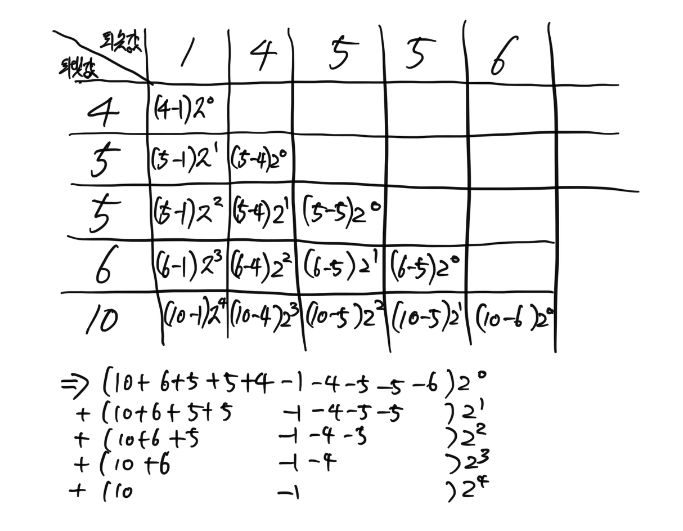 최솟값 1 4 5 5 6
최댓값
4 (4-1)2⁰
5 (5-1)2¹ (5-4)2⁰
5 (5-1)2² (5-4)2¹ (5-5)2⁰
6 (6-1)2³ (6-4)2² (6-5)2¹ (6-5)2⁰
10 (10-1)2⁴ (10-4)2³ (10-5)2² (10-5)2¹ (10-6)2⁰
⇒ (10+6+5+5+4-1-4-5-5-6)2⁰
+ (10+6+5+5 -1-4-5-5 )2¹
+ (10+6+5 -1-4-5 )2²
+ (10+6 -1-4 )2³
+ (10 -1 )2⁴